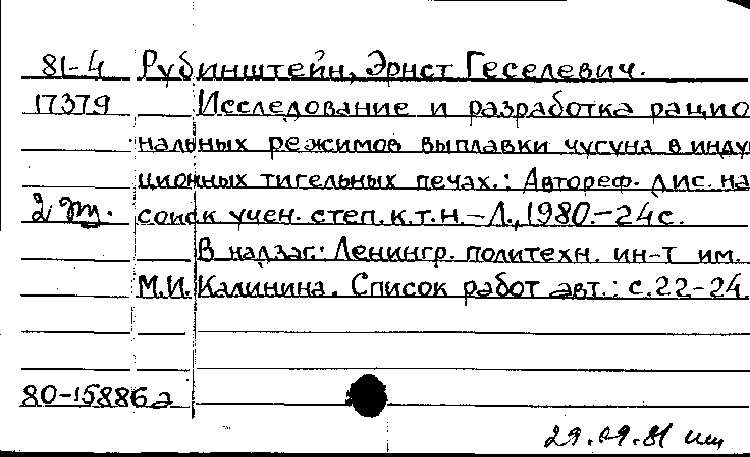 81-4 Рубинштейн, Эрнст Геселевич.
17379 Исследование и разработка рацио
нальных режимов выплавки чугуна в инду
ционных тигельных печах.: Автореф. дис. на
2 соиск учен. степ. к.т.н. - Л., 1980. - 24 с.
В надзаг.: Ленингр. политехн. ин-т им.
М.И. Калинина. Список работ авт.: с. 22-24.
80-15886а
29.09.81